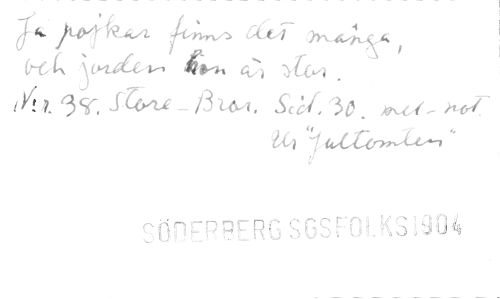 Ja pojkar finns det många,
och jorden hon är stor.
N:r. 38. Store-Bror. Sid. 30. mel-not.
Ur "Jultomten"
SÖDERBERG SGSFOLKS1904